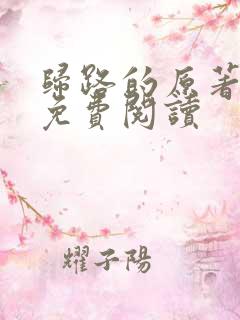 歸路的原著
免費閱讀
耀子陽